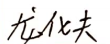 龙化夫